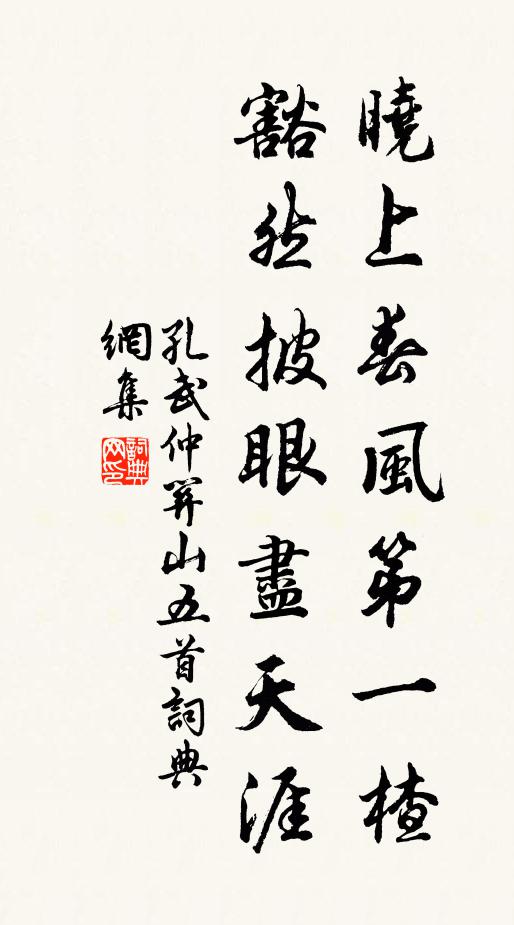 曉上春風第一楂
豁然披眼盡天涯
孔武仲羿山五首詞典
網集
詞典網印